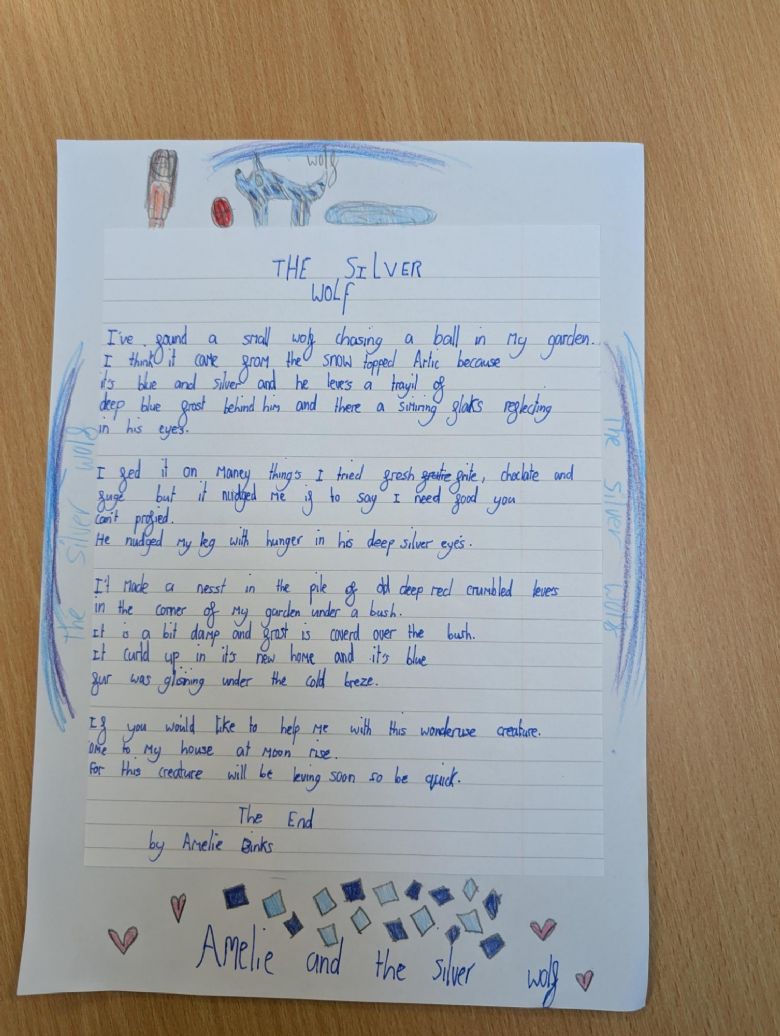 wolf
THE SILVER
WOLF
I've found a small wolf chasing a ball in My garden.
I think it came from the snow topped Artic because
it's blue and silver and he leve's a trayil of
deep blue frost behind him and there a simiring flaks reflecting
in his eye's.
I fed it on Maney thing's I tried fresh frite, choclate and
fuge but it nudged me if to say I need food you
can't profied.
He nudged My leg with hunger in his deep silver eye's.
I'f Made a nesst in the pile of old deep red crumbled leve's
in the corner of My garden under a bush.
It is a bit damp and frost is coverd over the bush.
It curld up in it's new home and it's blue
fur was glisning under the cold breze.
If you would like to help me with this wonderuse creature.
ome to My house at Moon rise.
For this creature will be leving soon so be quick.
The End
by Amelie Binks
the silver wolf
The silver wolf
Amelie and the silver wolf